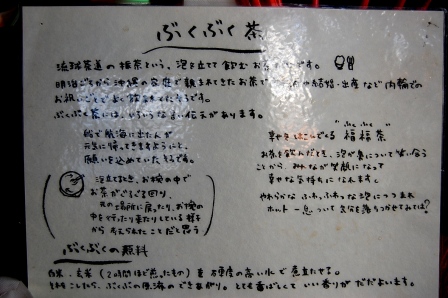 ぶくぶく茶
琉球茶道の振茶という、泡を立てて飲むお茶 です。
明治ごろから沖縄の家庭で親しまれてきたお茶で 結婚・出産など内輪での
お祝いごとでよく飲まれて そうです。
ぶくぶく茶には、いろいろな言い伝えがあります。
船で航海に出た人が
元気に帰ってきますようにと、
願いを込めていたそうです。
泡立てるとき、お椀の中で
お茶がぐるぐる回り、
元の場所に戻ったり、お椀の
中を行ったり来たりしている様子
から考えられたことだと思う
ふくふく
幸せをはこんでくる 福福茶
お茶を飲んだとき、泡が鼻について笑い合う
ことから、みんなが笑顔になって
幸せな気持ちになれます。
やわらかな ふわふわな泡につつまれ
ホット一息ついて気分を落ちつかせてみては?
ぶくぶくの原料
白米、玄米(2時間ほど煎ったもの)を硬度の高い水で煮立たせる。
それをこしたら、ぶくぶくの原液のできあがり。とても香ばしくていい香りがただよいます。